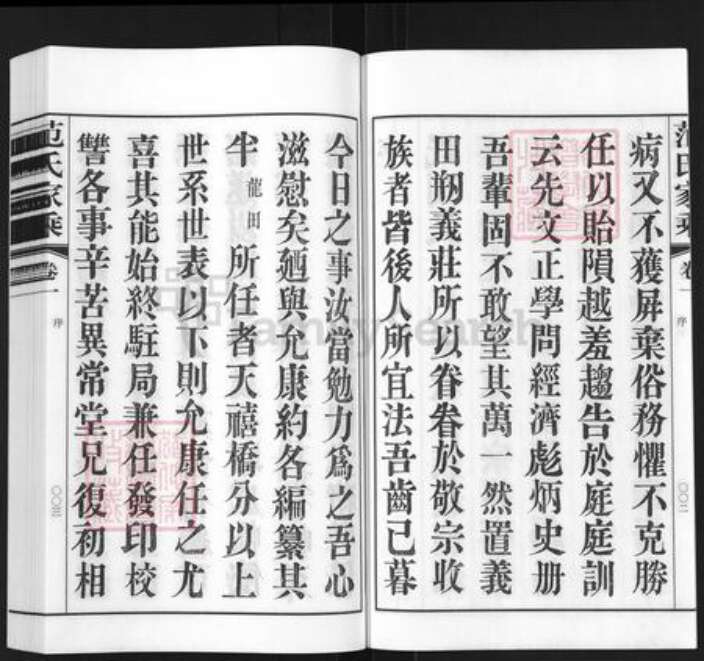 范氏家乘
卷一
序
〇〇三二
病又不獲屏棄俗務懼不克勝
任以貽隕越羞趨告於庭庭訓
云先文正學問經濟彪炳史册
吾輩固不敢望其萬一然置義
田刱義莊所以眷眷於敬宗收
族者皆後人所宜法吾齒已暮
今日之事汝當勉力爲之吾心
滋慰矣廼與允康約各編纂其
半龍田所任者天禧橋分以上
世系世表以下則允康任之尤
喜其能始終駐局兼任發印校
讐各事辛苦異常堂兄復初相
范氏家乘
卷一
序